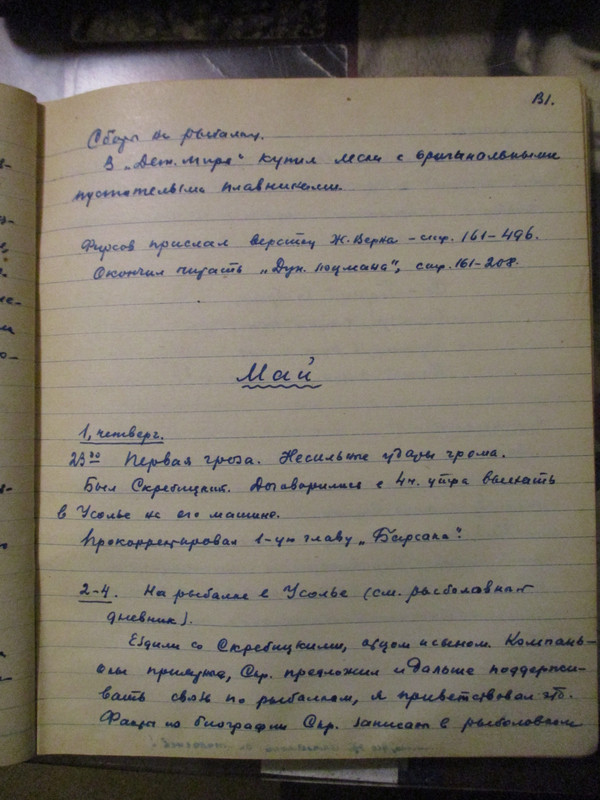 131.
Сборы на рыбалку.
В „Дет. мире" купил лески с оригинальными
пустотелыми плавниками.
Фирсов прислал верстку Ж. Верна – стр. 161–496.
Окончил читать „Дун. лоцмана", стр. 161–208.
Май
1, четверг.
23⁰⁰ Первая гроза. Несильные удары грома.
Был Скребицкий. Договорились в 4 ч. утра выехать
в Усолье на его машине.
Прокорректировал 1-ую главу „Барсака".
2–4. На рыбалке в Усолье (см. рыболовный
дневник).
Ездили со Скребицкими, отцом и сыном. Компань-
оны приятные, Скр. предложил и дальше поддержи-
вать связь по рыбалкам, я приветствовал это.
Факты по биографии Скр. записаны в рыболовном